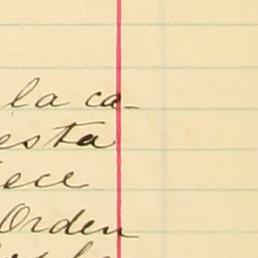 la ca-
esta
ece
Orden